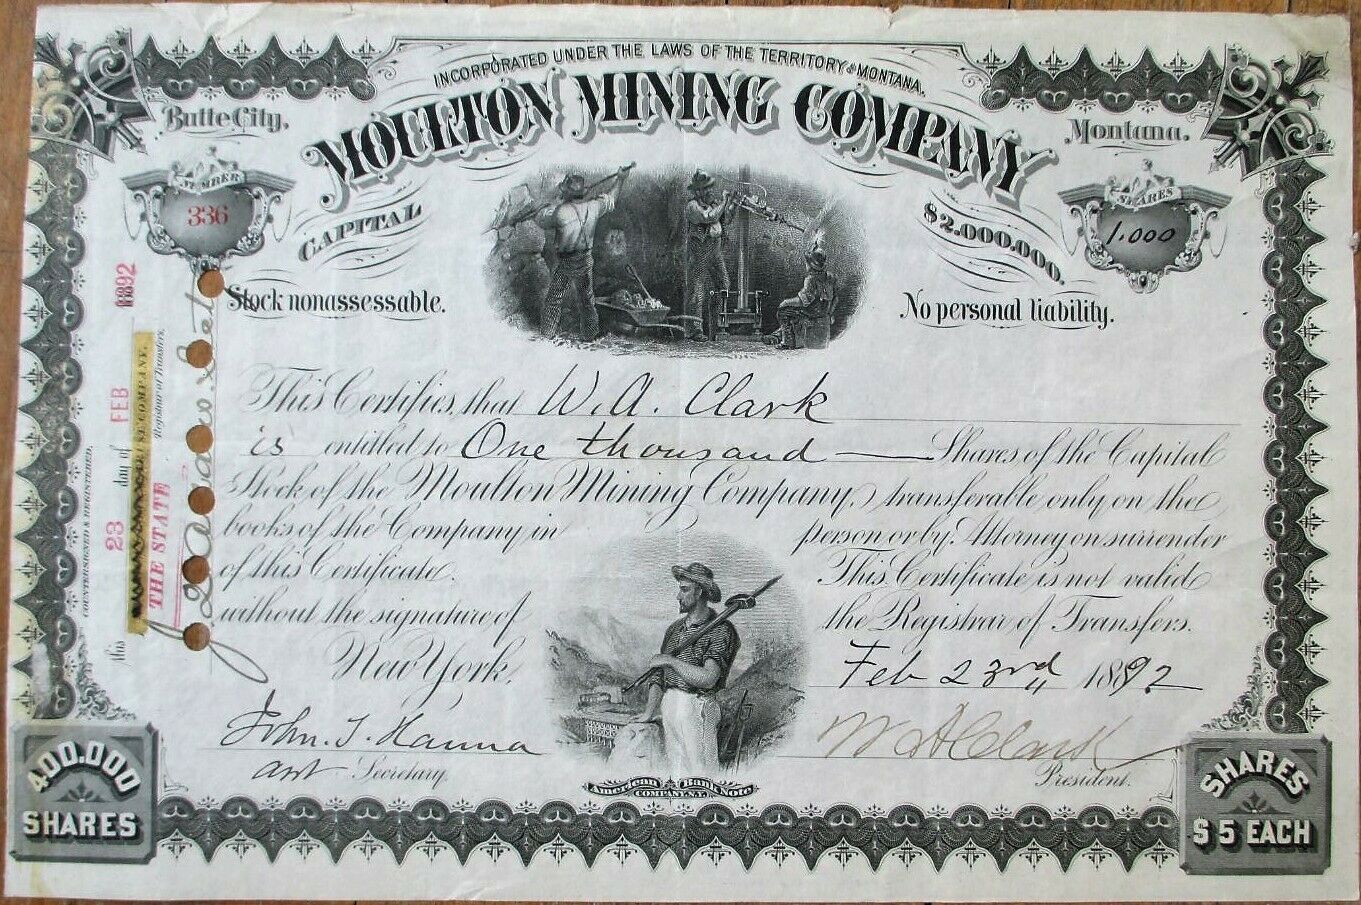 INCORPORATED UNDER THE LAWS OF THE TERRITORY OF MONTANA.
Butte City,
MOULTON MINING COMPANY
Montana.
NUMBER
336
CAPITAL
$2.000.000.
SHARES
1.000
Stock nonassessable.
No personal liability.
This Certifies, that W. A. Clark
is entitled to One thousand Shares of the Capital
Stock of the Moulton Mining Company, transferable only on the
books of the Company in person or by Attorney on surrender
of this Certificate. This Certificate is not valid
without the signature of the Registrar of Transfers.
New York, Feb 23rd 1892
John. T. Hanna
W A Clark
asst Secretary.
President.
American Bank Note
COMPANY, N.Y.
400.000
SHARES
SHARES
$5 EACH
COUNTERSIGNED & REGISTERED,
this 23 day of FEB 1892
THE STATE
Registrar of Transfers.